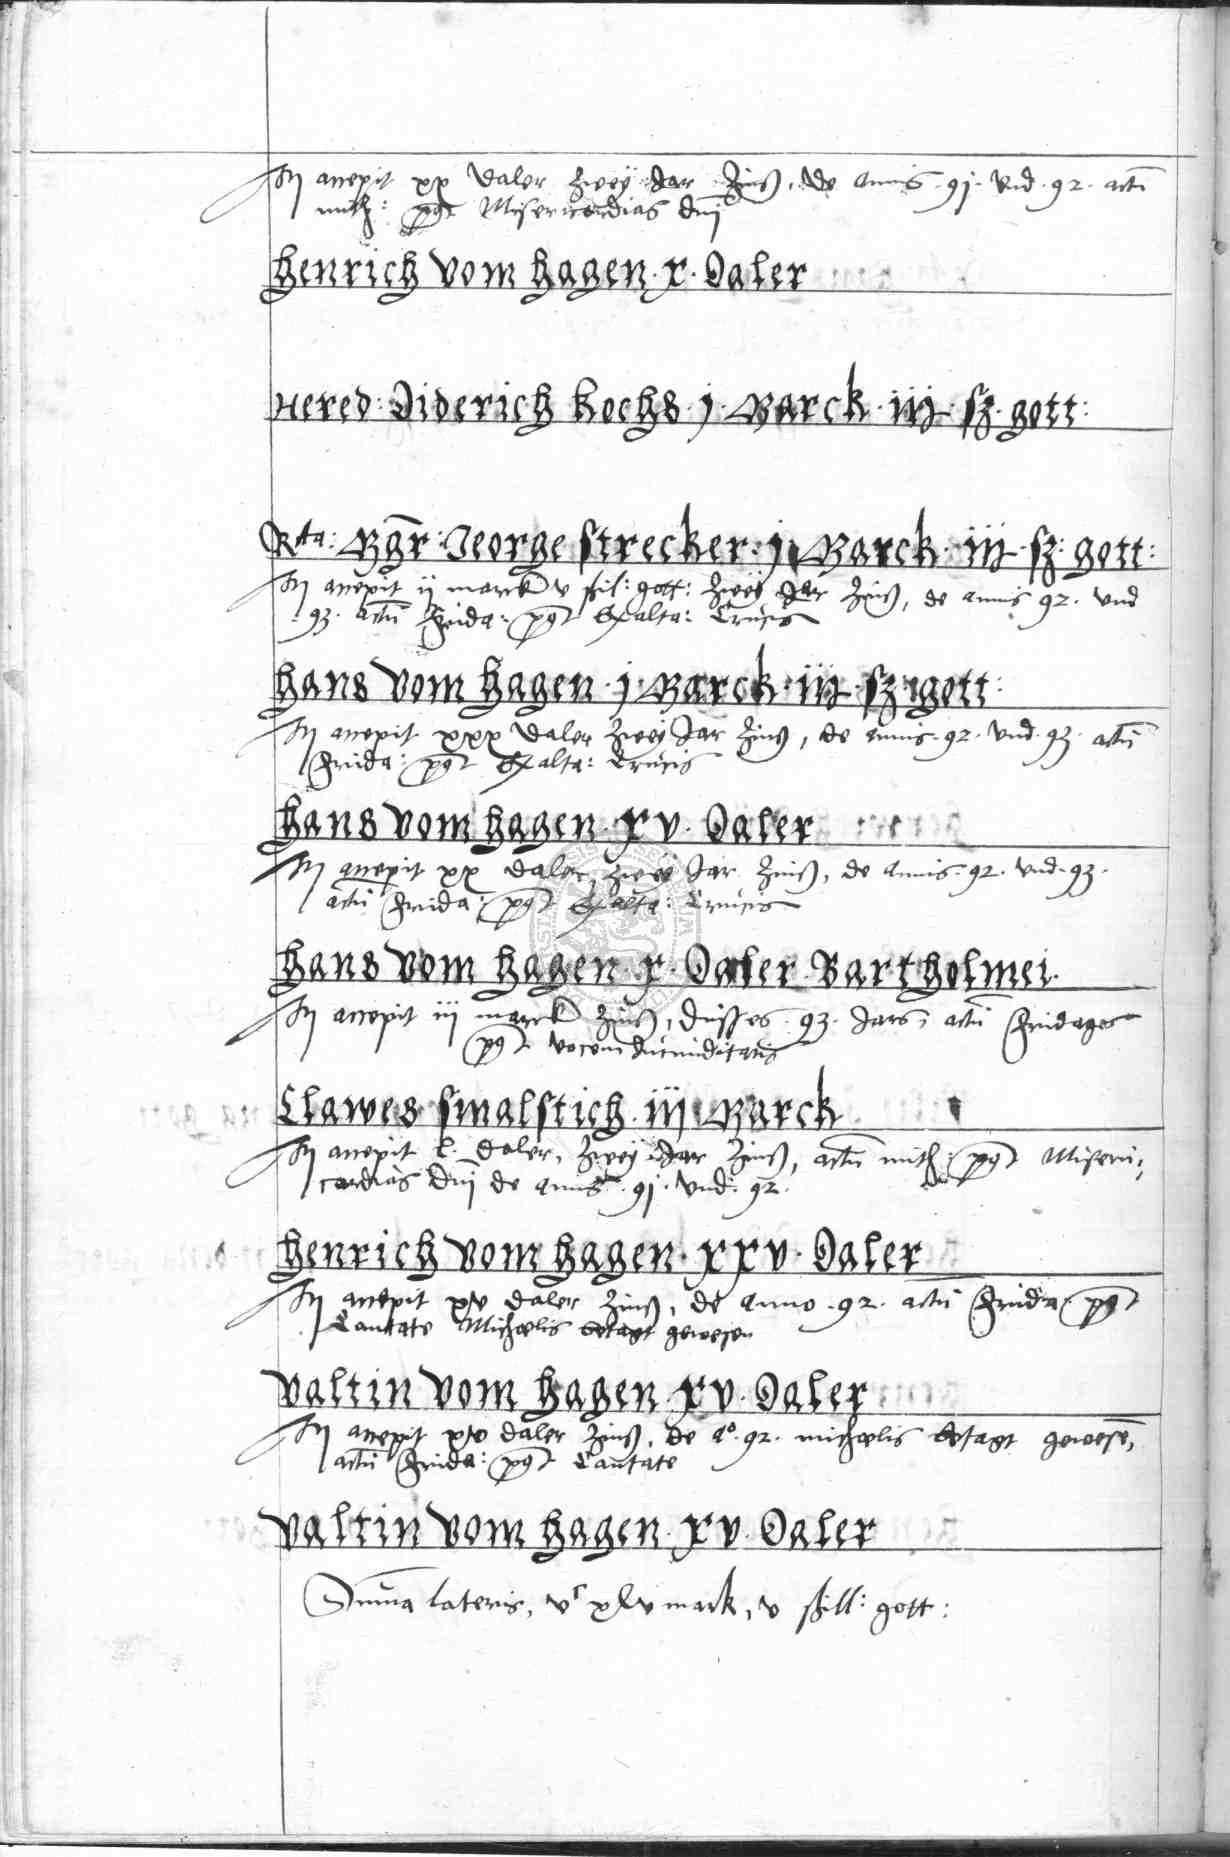 Hy accepit xx Daler zwey Jar Zinß, de annis .91. vnd .92. actū
mith: pꝰt Misericordias dnī
Henrich vom Hagen . x . Daler
Hered: Diderich Kochs . j . Marck . iij . sz . gott:
Rta: Mgr̄: Jeorge Strecker . j . Marck . iij . sz: gott:
Hy accepit ij marck v sil: gott: zwey Jar Zinß, de annis 92. vnd
.93. actū Frida: pꝰt Exalta: Crucis
Hans vom Hagen . j . Marck . iij . sz . gott:
Hy accepit xxx Daler zwey Jar Zinß, de annis .92. vnd .93. actū
Frida: pꝰt Exalta: Crucis
Hans vom Hagen . xv . Daler
Hy accepit xx daler, zwey Jar Zinß, de annis .92. vnd .93.
actū Frida: pꝰt Exalta: Crucis
Hans vom Hagen . x . Daler . Bartholmei.
Hy accepit iij marck Zinß, dusses .93. Jars, actū Fridages
pꝰt vocem Jucunditatis
Clawes Smalstich . iij . Marck
Hy accepit l. daler, zwey Jar Zinß, actū mith: pꝰt Miseri,
cordias dnī de annis .91. vnd .92.
Henrich vom Hagen . xxv . Daler
Hy accepit xv daler Zinß, de anno .92. actū Frida: pꝰt
Cantate Michaelis betagt gewesen
Valtin vom Hagen . xv . Daler
Hy accepit xv daler Zinß, de Aº .92. michaelis betagt gewesē,
actū Frida: pꝰt Cantate
Valtin vom Hagen . xv . Daler
Sum̄a lateris, xlv mark, v schill: gott: